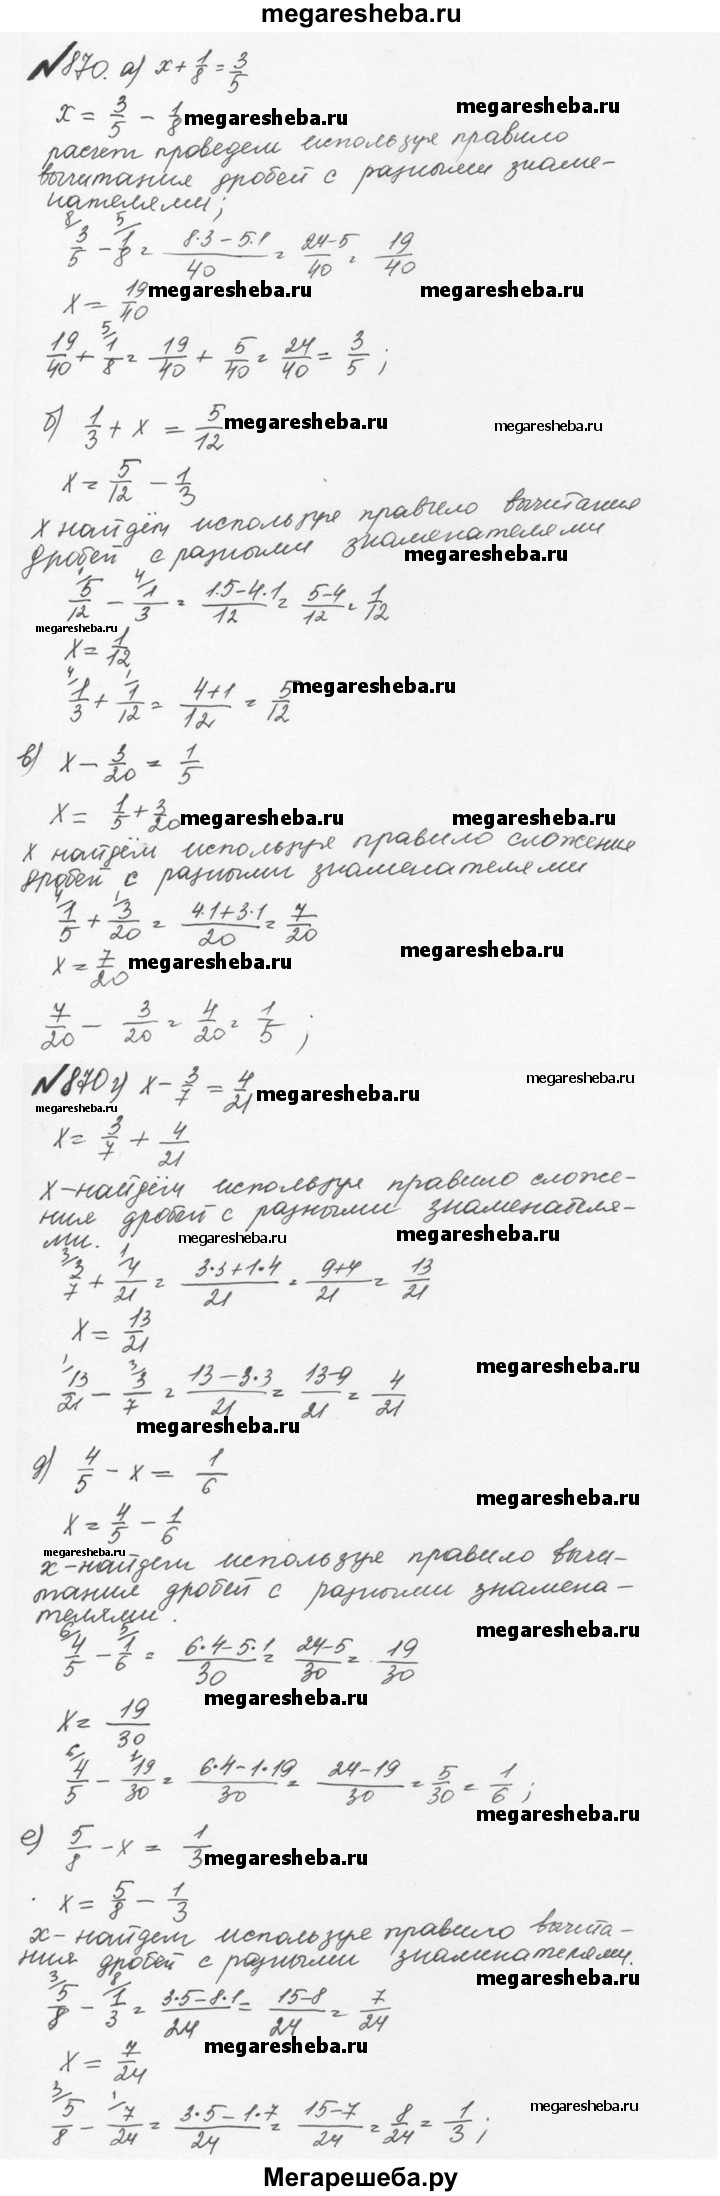 megaresheba.ru
№870. а) x + 1/8 = 3/5
x = 3/5 − 1/8 megaresheba.ru megaresheba.ru
расчет проведем используя правило
вычитания дробей с разными знаме-
нателями;
8/ 3/5 − 5/ 1/8 = (8·3 − 5·1)/40 = (24−5)/40 = 19/40
x = 19/40 megaresheba.ru megaresheba.ru
19/40 + 5/ 1/8 = 19/40 + 5/40 = 24/40 = 3/5 ;
б) 1/3 + x = 5/12 megaresheba.ru megaresheba.ru
x = 5/12 − 1/3
x найдём используя правило вычитания
дробей с разными знаменателями megaresheba.ru
1/ 5/12 − 4/ 1/3 = (1·5−4·1)/12 = (5−4)/12 = 1/12
megaresheba.ru
x = 1/12
4/ 1/3 + 1/ 1/12 = (4+1)/12 = 5/12 megaresheba.ru
в) x − 3/20 = 1/5
x = 1/5 + 3/20 megaresheba.ru megaresheba.ru
x найдём используя правило сложение
дробей с разными знаменателями
4/ 1/5 + 1/ 3/20 = (4·1+3·1)/20 = 7/20
x = 7/20 megaresheba.ru megaresheba.ru
7/20 − 3/20 = 4/20 = 1/5 ;
№870 г) x − 3/7 = 4/21 megaresheba.ru megaresheba.ru
megaresheba.ru
x = 3/7 + 4/21
x – найдём используя правило сложе-
ния дробей с разными знаменателя-
ми. megaresheba.ru megaresheba.ru
3/ 3/7 + 1/ 4/21 = (3·3+1·4)/21 = (9+4)/21 = 13/21
x = 13/21
1/ 13/21 − 3/ 3/7 = (13−3·3)/21 = (13−9)/21 = 4/21 megaresheba.ru
megaresheba.ru
д) 4/5 − x = 1/6
x = 4/5 − 1/6 megaresheba.ru
megaresheba.ru
x – найдем используя правило вычи-
тания дробей с разными знамена-
телями. megaresheba.ru
6/ 4/5 − 5/ 1/6 = (6·4−5·1)/30 = (24−5)/30 = 19/30
megaresheba.ru
x = 19/30
6/ 4/5 − 1/ 19/30 = (6·4−1·19)/30 = (24−19)/30 = 5/30 = 1/6 ;
megaresheba.ru
е) 5/8 − x = 1/3 megaresheba.ru
x = 5/8 − 1/3
x – найдем используя правило вычита-
ния дробей с разными знаминателями.
megaresheba.ru
3/ 5/8 − 8/ 1/3 = (3·5−8·1)/24 = (15−8)/24 = 7/24
x = 7/24 megaresheba.ru
3/ 5/8 − 1/ 7/24 = (3·5−1·7)/24 = (15−7)/24 = 8/24 = 1/3 ; megaresheba.ru
Мегарешеба.ру